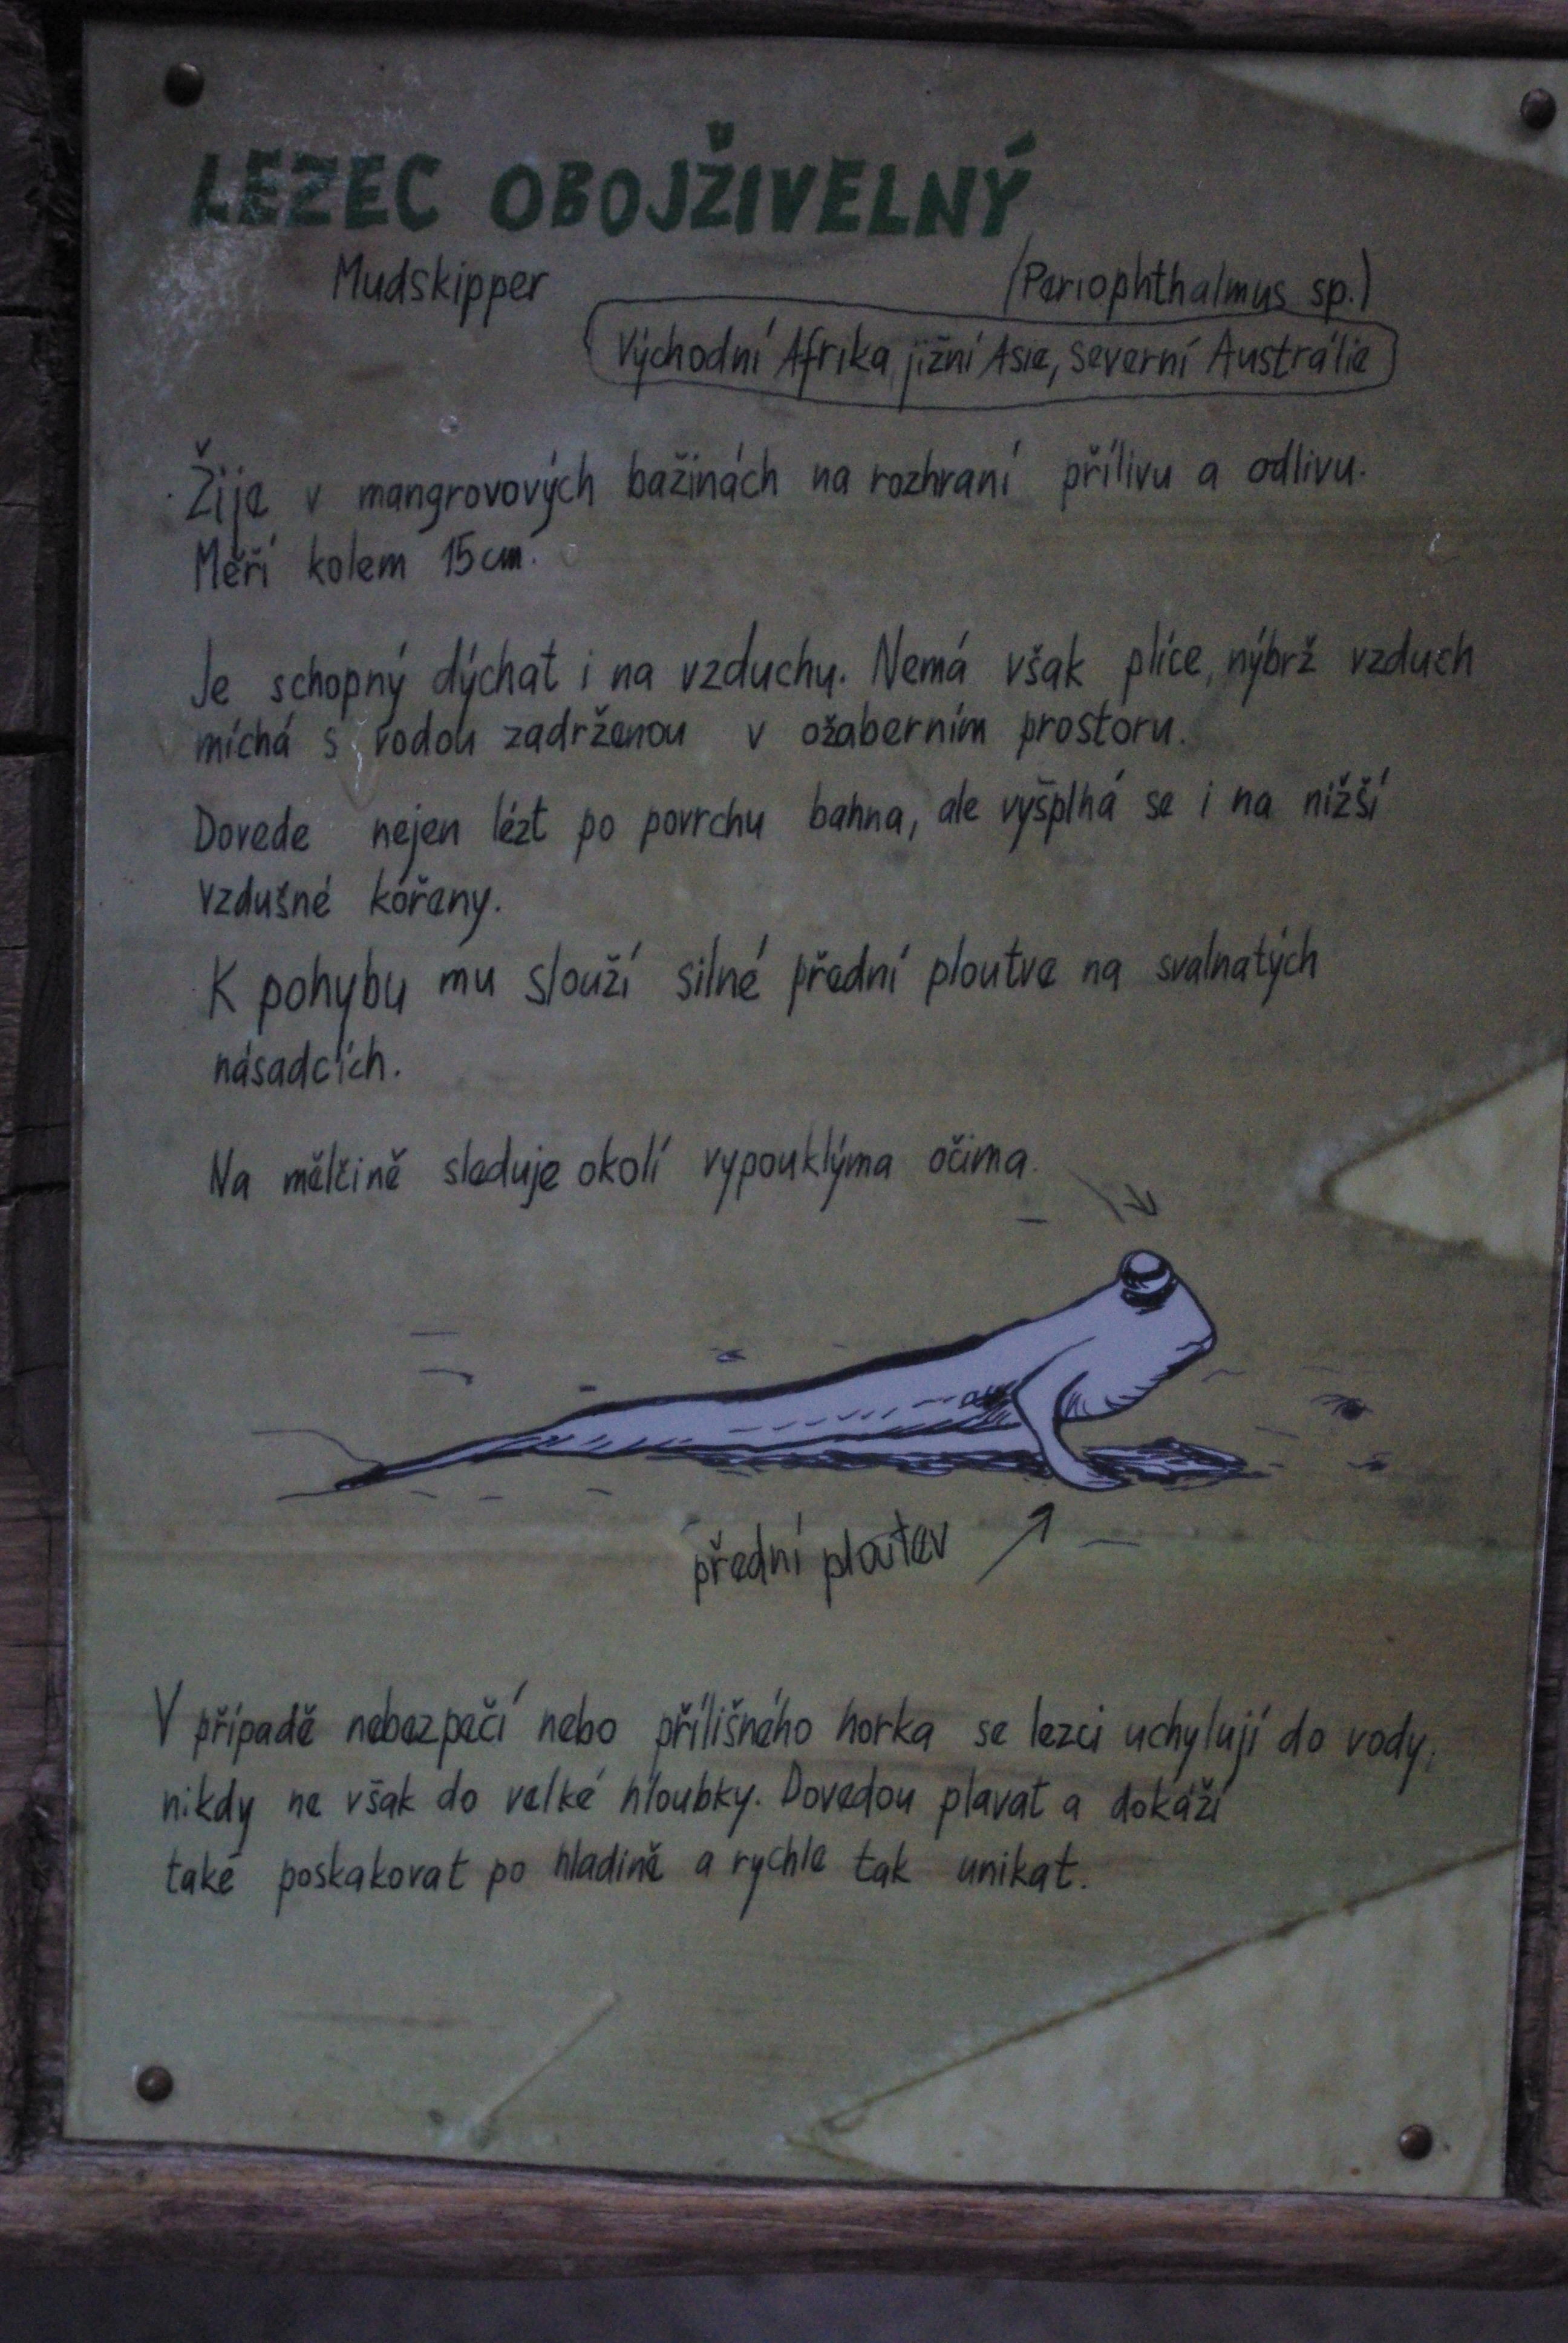 LEZEC OBOJŽIVELNÝ
Mudskipper (Periophthalmus sp.)
Východní Afrika, jižní Asie, severní Austrálie
Žije v mangrovových bažinách na rozhraní přílivu a odlivu.
Měří kolem 15 cm.
Je schopný dýchat i na vzduchu. Nemá však plíce, nýbrž vzduch
míchá s vodou zadrženou v ožaberním prostoru.
Dovede nejen lézt po povrchu bahna, ale vyšplhá se i na nižší
vzdušné kořeny.
K pohybu mu slouží silné přední ploutve na svalnatých
násadcích.
Na mělčině sleduje okolí vypouklýma očima.
přední ploutev
V případě nebezpečí nebo přílišného horka se lezci uchylují do vody,
nikdy ne však do velké hloubky. Dovedou plavat a dokáží
také poskakovat po hladině a rychle tak unikat.